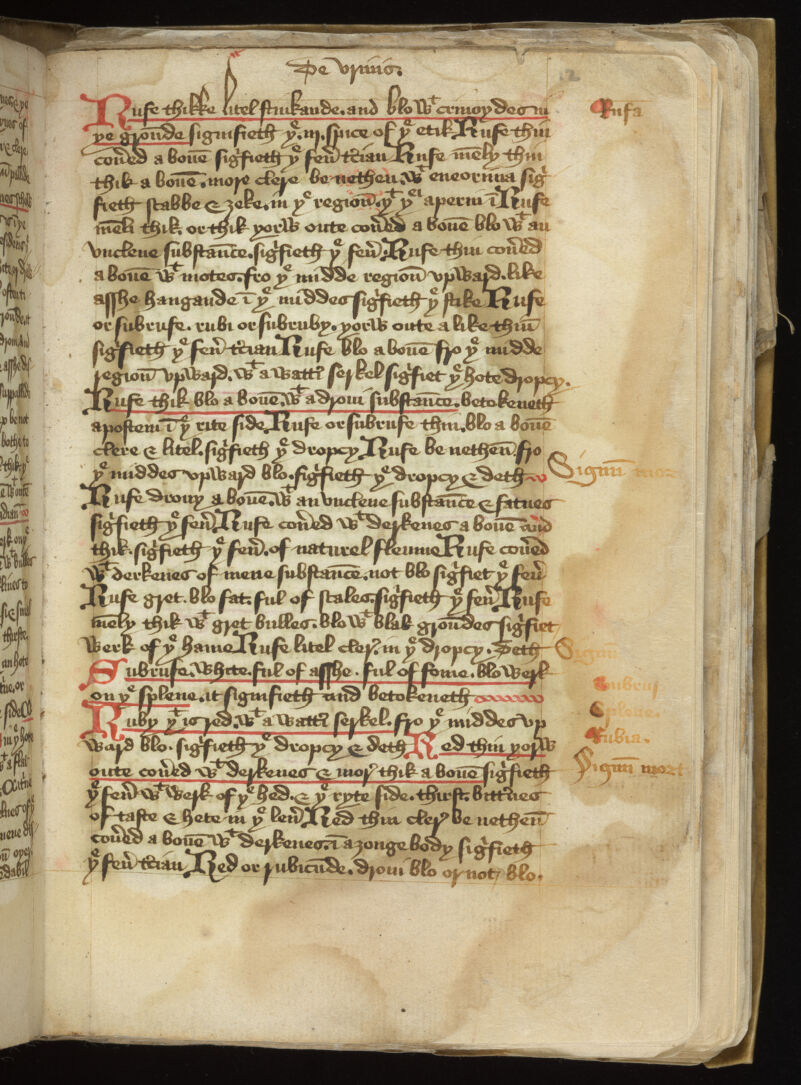 De vrinis.
Rufe thikke litel stinkande. and blo wͭ crmoydes in
yͤ grounde signifieth yͤ .iij. spice of yͤ etik. Rufe thin
cou̅ed a boue̅ sig̉fieth yͤ feu̅ t̉cian Rufe me̅ly thin
thik a boue̅. more clere be nethen. wͭ eneorima sig̉
fieth scabbe & zeke. in yͤ regiou̅. yͭ yͤ aperin i̅ Rufe
meli thik. or thik yorw oute cou̅ed a boue̅ blo wͭ an
vnclene substau̅ce. sig̉fieth yͤ feu̅. Rufe thin cou̅ed
a boue̅ wͭ motes. fro yͤ midde regiou̅ vpward. like
asshe hangande i̅ yͤ middes sig̉fieth yͤ stike Rufe
or subrufe. rubi or subruby. yorw oute a like thin̅
sig̉fieth yͤ feu̅ t̉cian Rufe blo a boue̅ fro yͤ midde
regiou̅ vpward. wͭ a watt̉i serkel sig̉fiet yͤ hote dropcy.
Rufe thik blo a boue̅. wͭ a droui substau̅ce. betokeneth
apostem i̅ yͤ rite side. Rufe or subrufe thin. blo a boue̅
clere & litel. sig̉fieth yͤ dropcy. Rufe be nethen. fro
yͤ middes vpward blo. sig̉fieth yͤ dropcy & deth
Rufe drouy a boue̅. wͭ an vnclene substau̅ce & fatnes
sig̉fieth yͤ feu̅. Rufe cou̅ed wͭ derkenes a boue̅ and
thik. sig̉fieth yͤ feu̅. of naturel fleume Rufe cou̅ed
wͭ derkenes of mene substau̅ce. not blo sig̉fiet yͤ feu̅
Rufe gret. blo fat. ful of scales. sig̉fieth yͤ feu̅ Rufe
mely thik wͭ gret bulles. blo wͭ blak grou̅des sig̉fiet
werk of yͤ hame Rufe litel cler̉. in yͤ dropcy. Deth
Subrufe. white. ful of asshe. ful of fome. blo werk
on yͤ splene. it signifieth and betokeneth
Ruby yͭ is red. wͭ a watt̉i serkel. fro yͤ middes vp
ward blo. sig̉fieth yͤ dropcy & deth Red thin yorw
oute cou̅ed wͭ derkenes & mor̉ thik a boue̅ sig̉fieth
yͤ feu̅ wͭ werk of yͤ hed. & yͤ ryte side. thirst. bitt̉nes
of taste & hete in yͤ leu̅ Red thin cler̉ be nethen̅
cou̅ed a boue̅ wͭ derkenes. i̅ a zonge body sig̉fieth
yͤ feu̅ t̉cian Red or rubicu̅de. droui blo or not, blo.
Rufa
Signu̅ mor
Signu̅
Subruf
Splene.
Rubia.
Signu̅ mort